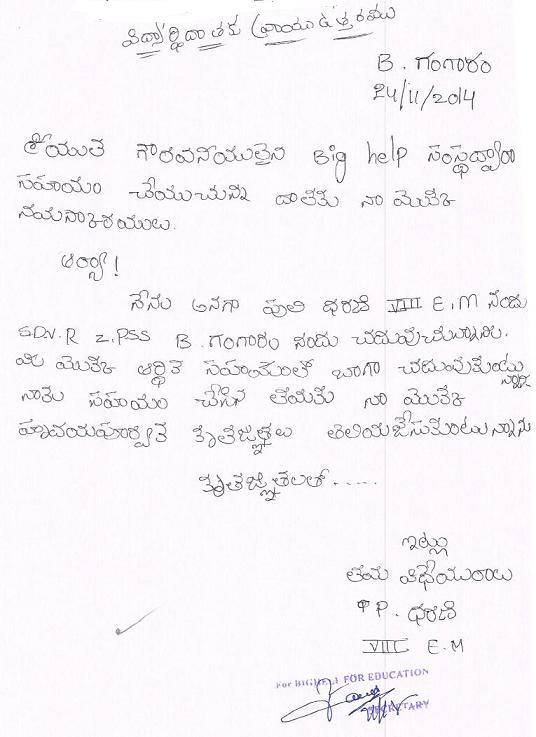 విద్యార్థి దాతకు వ్రాయు ఉత్తరము
B. గంగారం
24/11/2014
శ్రీయుత గౌరవనీయులైన Big help సంస్థద్వారా
సహాయం చేయుచున్న దాతకు నా యొక్క
నమస్కారములు.
ఆర్యా!
నేను అనగా పులి ధరణి VIII E.M నందు
S.D.V.R Z.PSS B.గంగారం నందు చదువుచున్నాను.
మీ యొక్క ఆర్థిక సహాయంతో బాగా చదువుకుంటు
న్నాను
నాకు సహాయం చేసిన తమకు నా యొక్క
హృదయపూర్వక కృతజ్ఞతలు తెలియజేసుకుంటున్నాను
కృతజ్ఞతలతో.....
ఇట్లు
తమ విధేయురాలు
P. ధరణి
VIII E.M
For BIGHELP FOR EDUCATION
SECRETARY